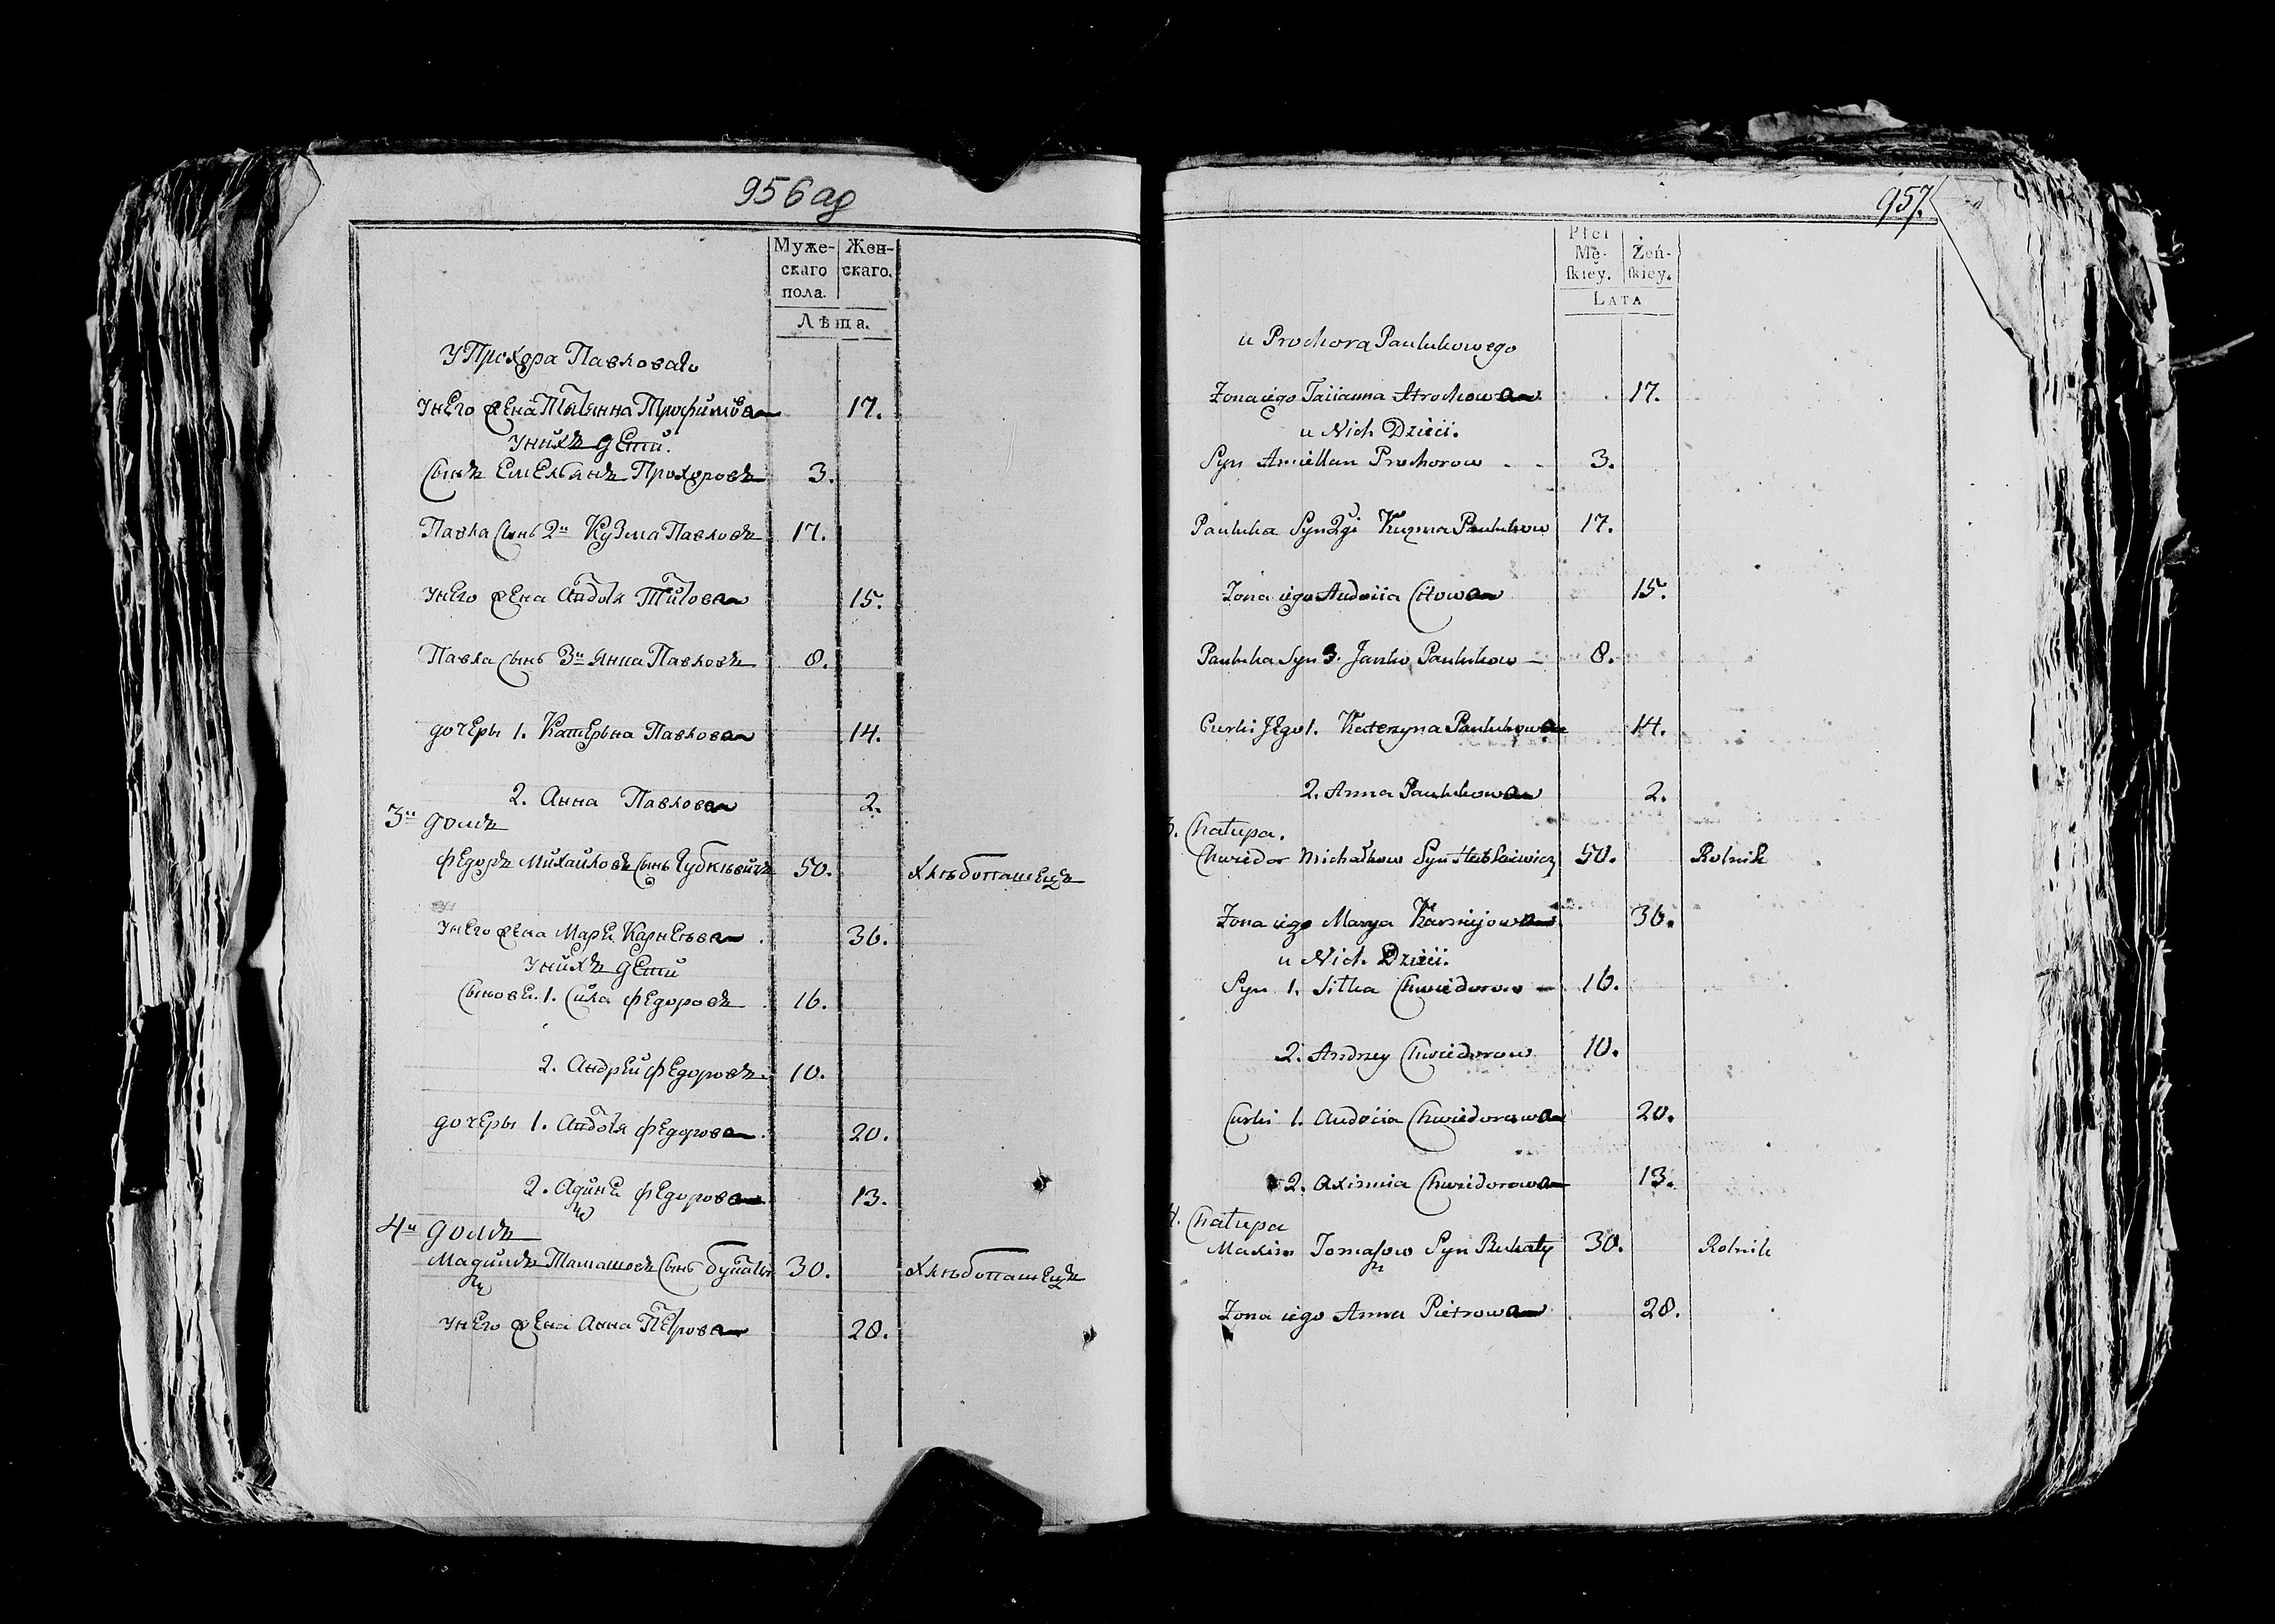 956 ад
Муже-
скаго
пола.
Жен-
скаго.
Лѣта.
У Прохора Павловаго
У него жена Татьянна Трофимова 17.
У нихъ дети.
Сынъ Емельянъ Прохоровъ 3.
Павла сынъ 2й Кузма Павловъ 17.
У него жена Авдотя Титова 15.
Павла сынъ 3й Янка Павловъ 8.
дочеры 1. Катерына Павлова 14.
2. Анна Павлова 2.
3й домъ
Федоръ Михайловъ сынъ 50. Хлѣбопашецъ
У него жена Марея Карнеева 36.
У нихъ дети
Сыновея. 1. Сила Федоровъ 16.
2. Андрей Федоровъ 10.
дочеры 1. Авдотя Федорова 20.
2. Федорова 13.
4й домъ
Томашовъ сынъ 30. Хлѣбопашецъ
У него жена Анна Петрова 28.
957.
Płci
Mę-
ſkiey.
Żeń-
ſkiey.
LATA
u Prochora Paulukowego
Zona iego Tacianna Atrochowa 17.
u Nich Dzieci.
Syn Amiellan Prochorow - - 3.
Pauluka Syn 2gi Kuzma Paulukow 17.
Zona iego Audocia Citowa 15.
Pauluka Syn 3. Janko Paulukow - 8.
Curki Jego 1. Katerzyna Paulukowa 14.
2. Anna Paulukowa 2.
3. Chałupa.
Chwiedor Michałkow Syn 50. Rolnik
Zona iego Marya Karniejowa 36.
u Nich Dzieci.
Syn 1. Siłka Chwiedorow - 16.
2. Andrzey Chwiedorow 10.
Curki 1. Audocia Chwiedorowa 20.
2. Aximia Chwiedorowa 13.
4. Chałupa
Maxim Tomaſow Syn Buhaty 30. Rolnik
Zona iego Anna Pietrowa 28.